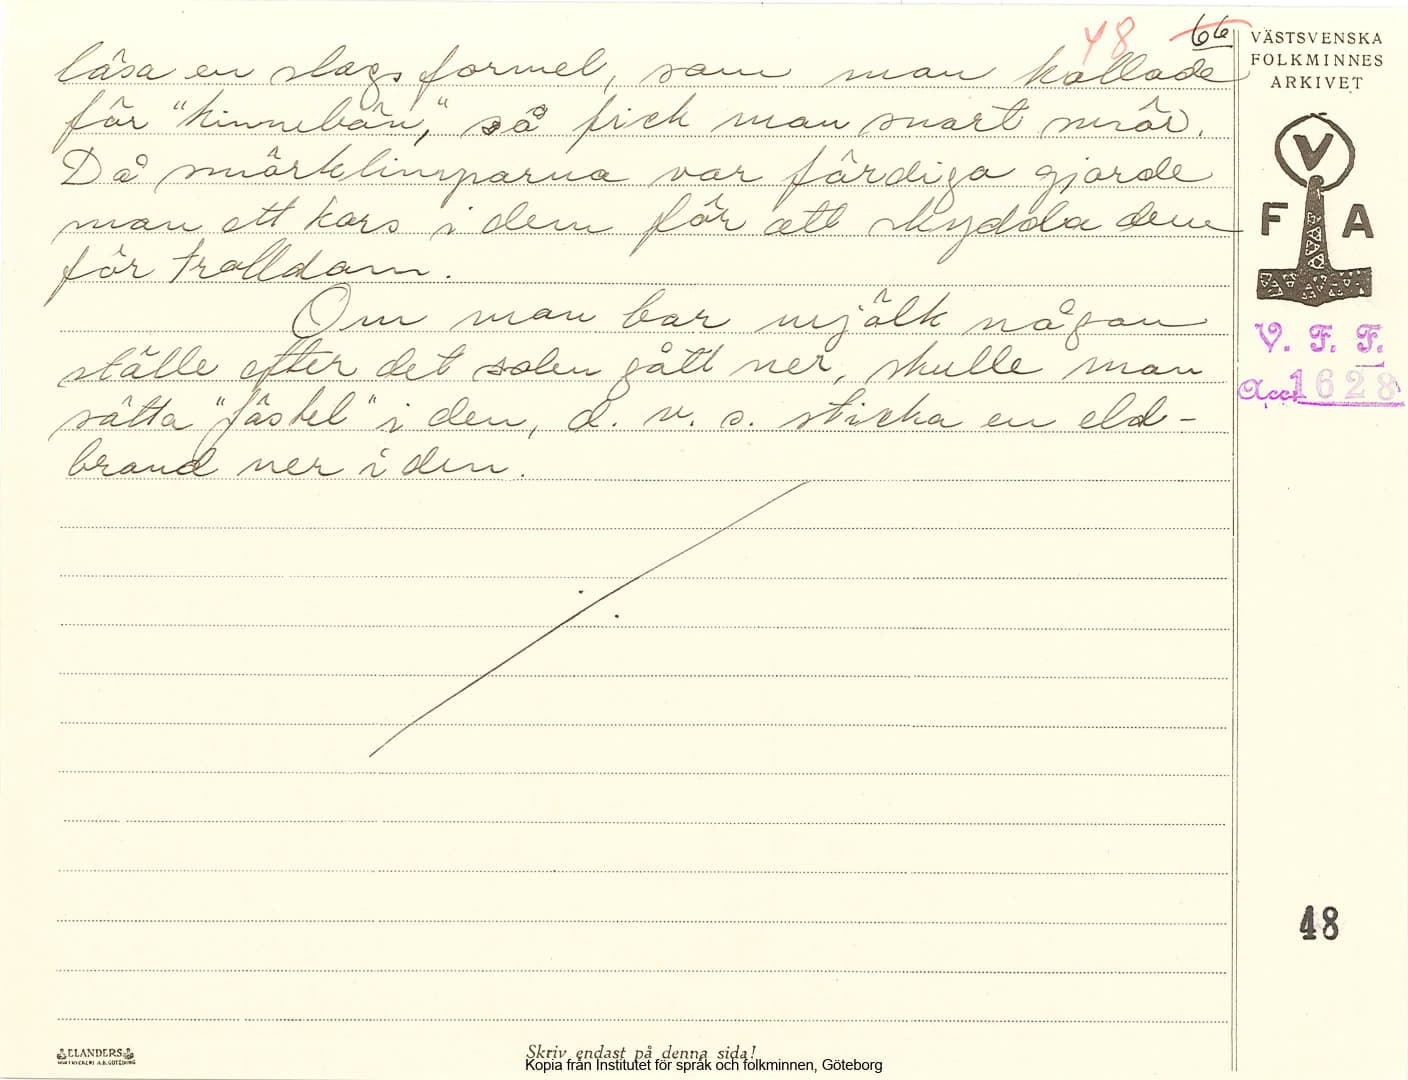 48 66
läsa en slags formel, som man kallade
för "kinnebön," så fick man snart smör.
Då smörklimparna var färdiga gjorde
man ett kors i dem för att skydda dem
för trolldom.
Om man bar mjölk någon
ställe efter det solen gått ner, skulle man
sätta "fästel" i den, d. v. s. sticka en eld-
brand ner i den.
VÄSTSVENSKA
FOLKMINNES
ARKIVET
V
F A
V. F. F.
Acc. 1628
48
ELANDERS
Skriv endast på denna sida!
Kopia från Institutet för språk och folkminnen, Göteborg